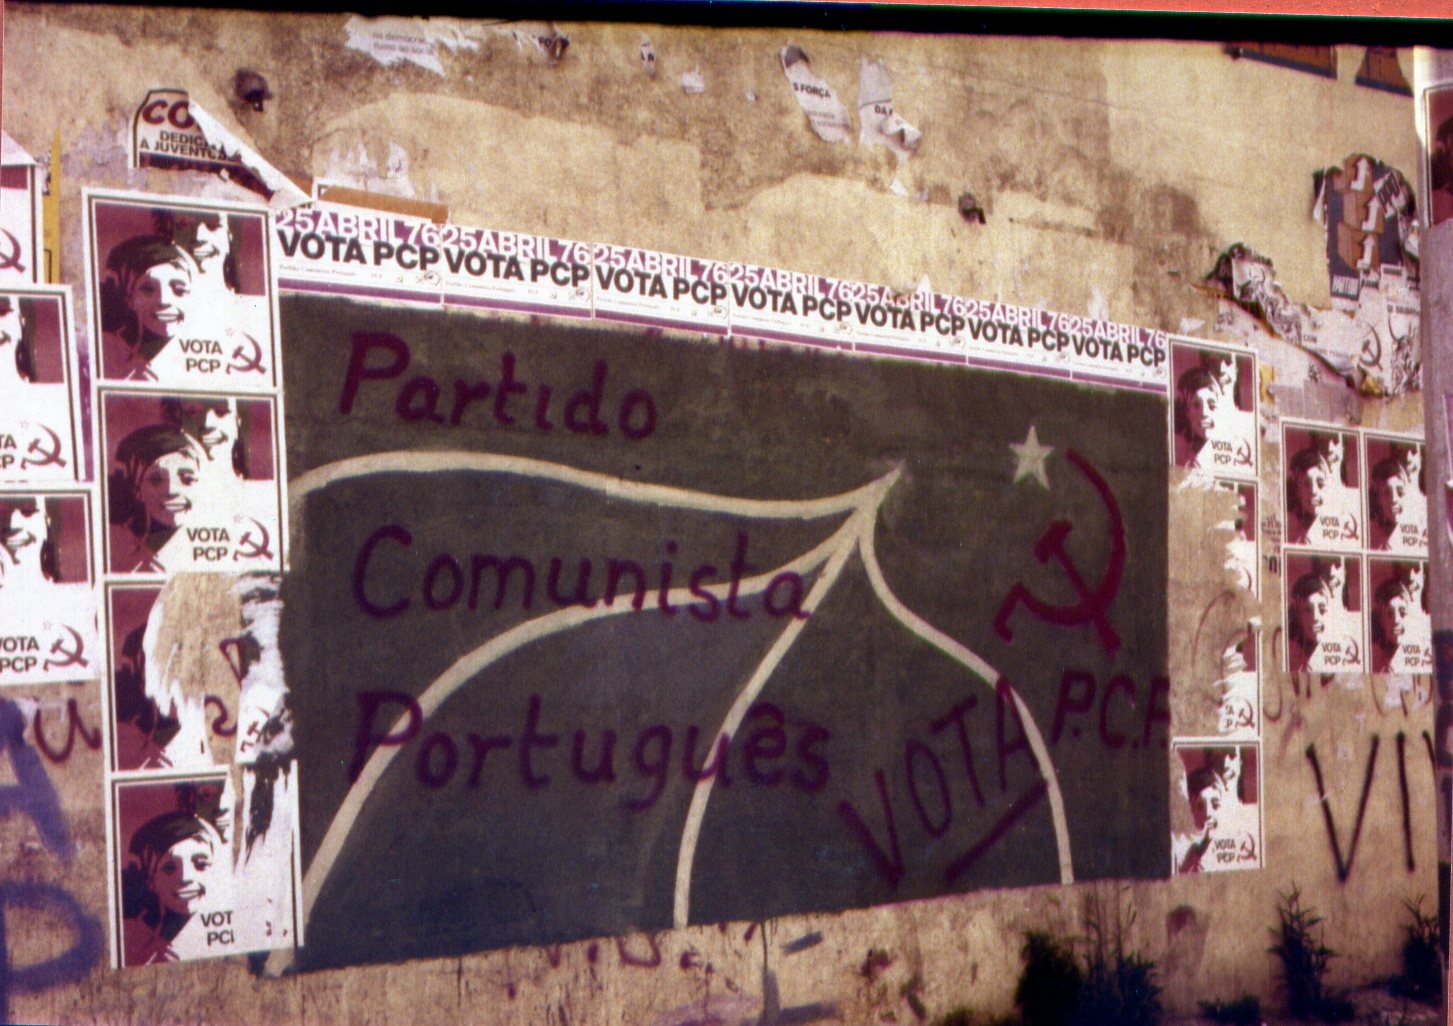 CO
DEDIC
À JUVENT
S FORÇA
DA
25 ABRIL 76 25 ABRIL 76 25 ABRIL 76 25 ABRIL 76 25 ABRIL 76 25 ABRIL 76 25 ABRIL 76
VOTA PCP VOTA PCP VOTA PCP VOTA PCP VOTA PCP VOTA PCP VOTA PCP
Partido Comunista Português
VOTA
PCP
VOTA
PCP
VOTA
PCP
VOT
PCI
Partido
Comunista
Português
VOTA P.C.P.
VOTA
PCP
VOTA
PCP
VOTA
PCP
VOTA
PCP
VOTA
PCP
VOTA
PCP
VI